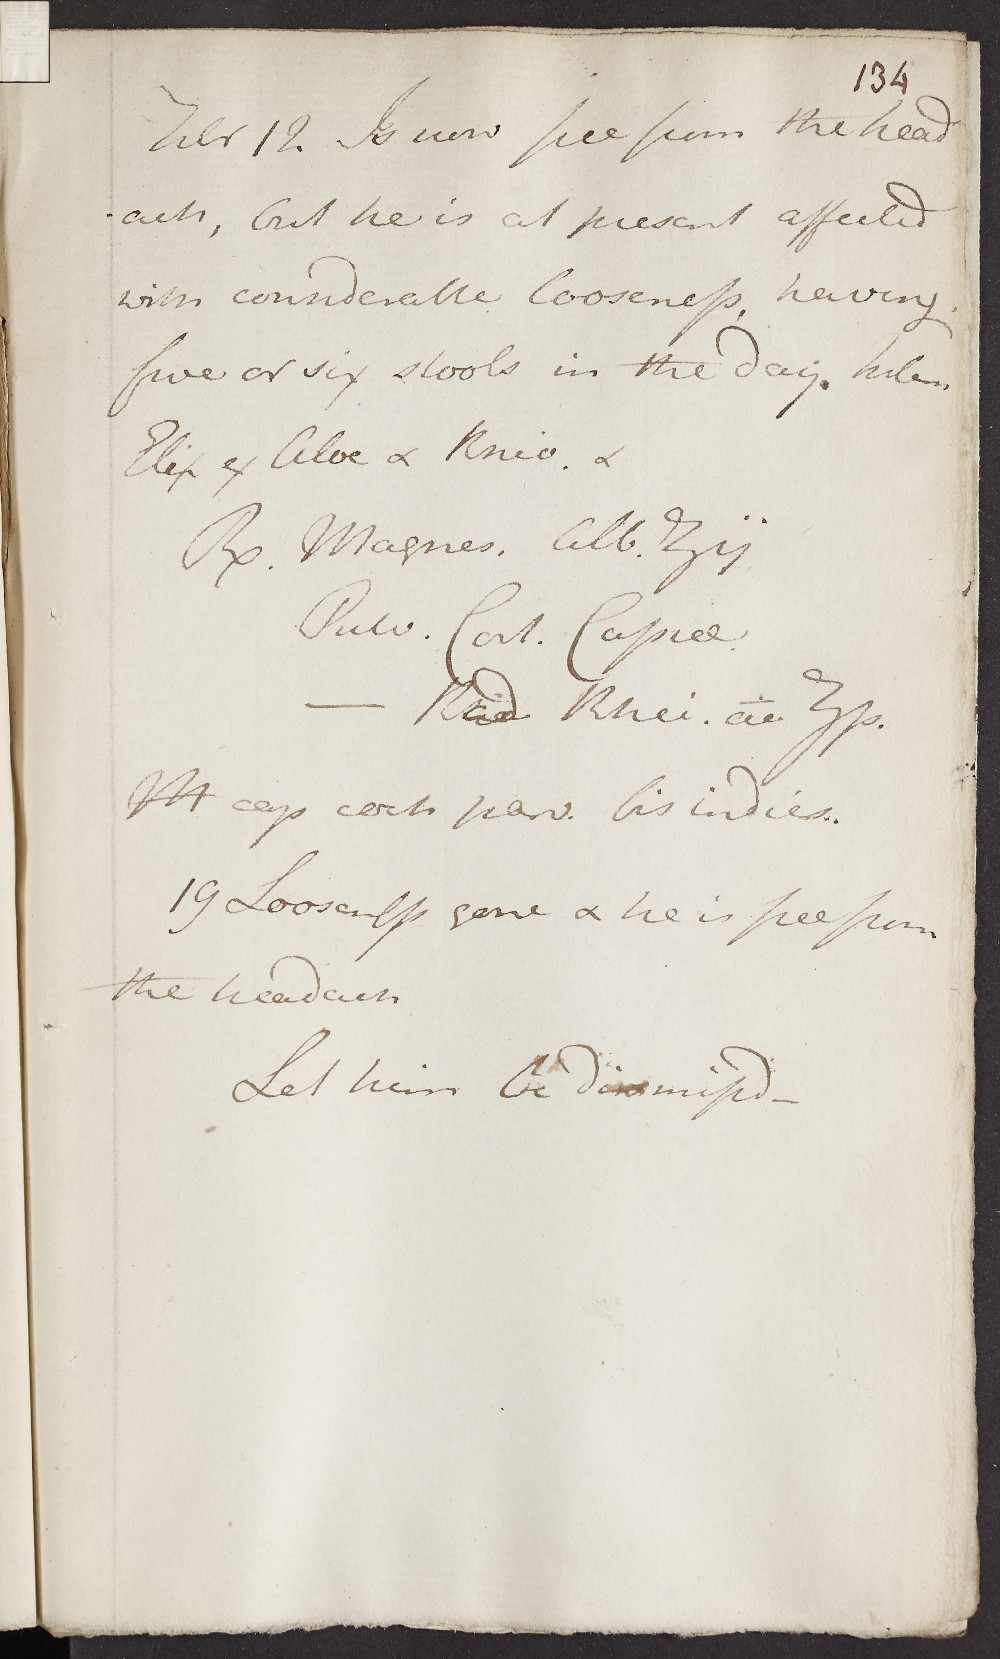 134
Febr 12. Is now free from the head
-ach, but he is at present affected
with considerable looseness, having
five or six stools in the day.
Elix ex Aloe & Rheo. &
Rx. Magnes. Alb. ʒij
Pulv. Cort. Cassiæ
— Rad Rhei. aa ʒſs.
M cap coch parv. bis indies.
19 Looseness gone & he is free from
the headach
Let him be dismissd -